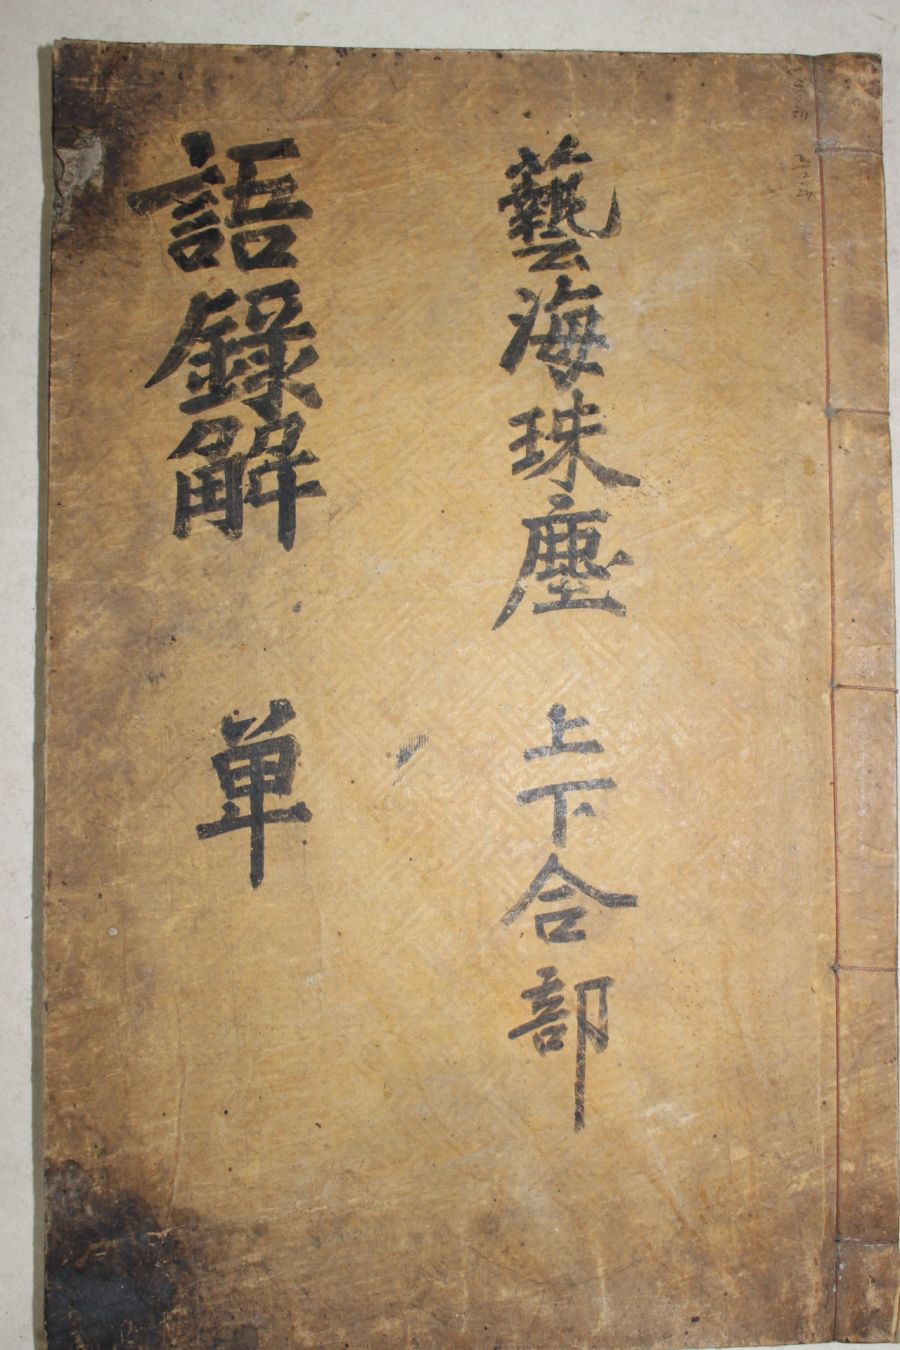 藝海珠塵 上下合部
語録解 単